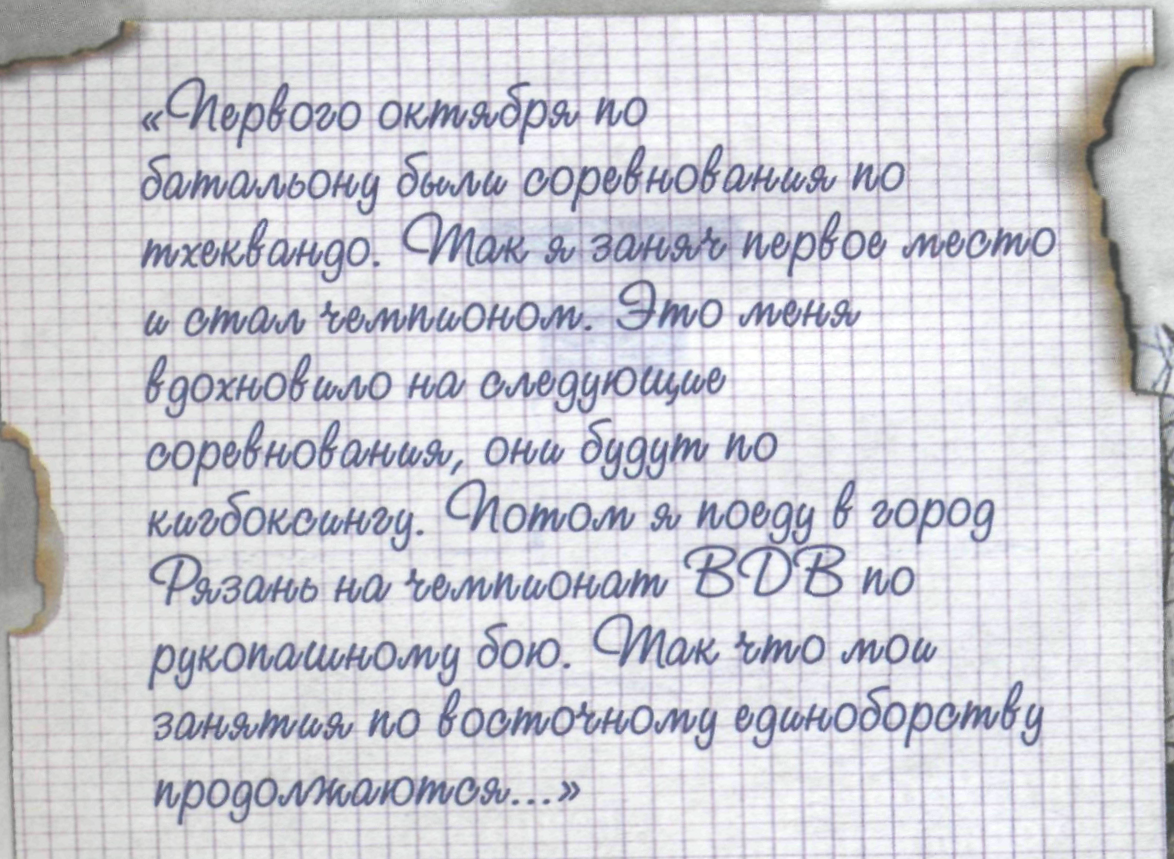 «Первого октября по
батальону были соревнования по
тхеквандо. Так я заняч первое место
и стал чемпионом. Это меня
вдохновило на следующие
соревнования, они будут по
кигбоксингу. Потом я поеду в город
Рязань на чемпионат ВДВ по
рукопашному бою. Так что мои
занятия по восточному единоборству
продолжаются...»